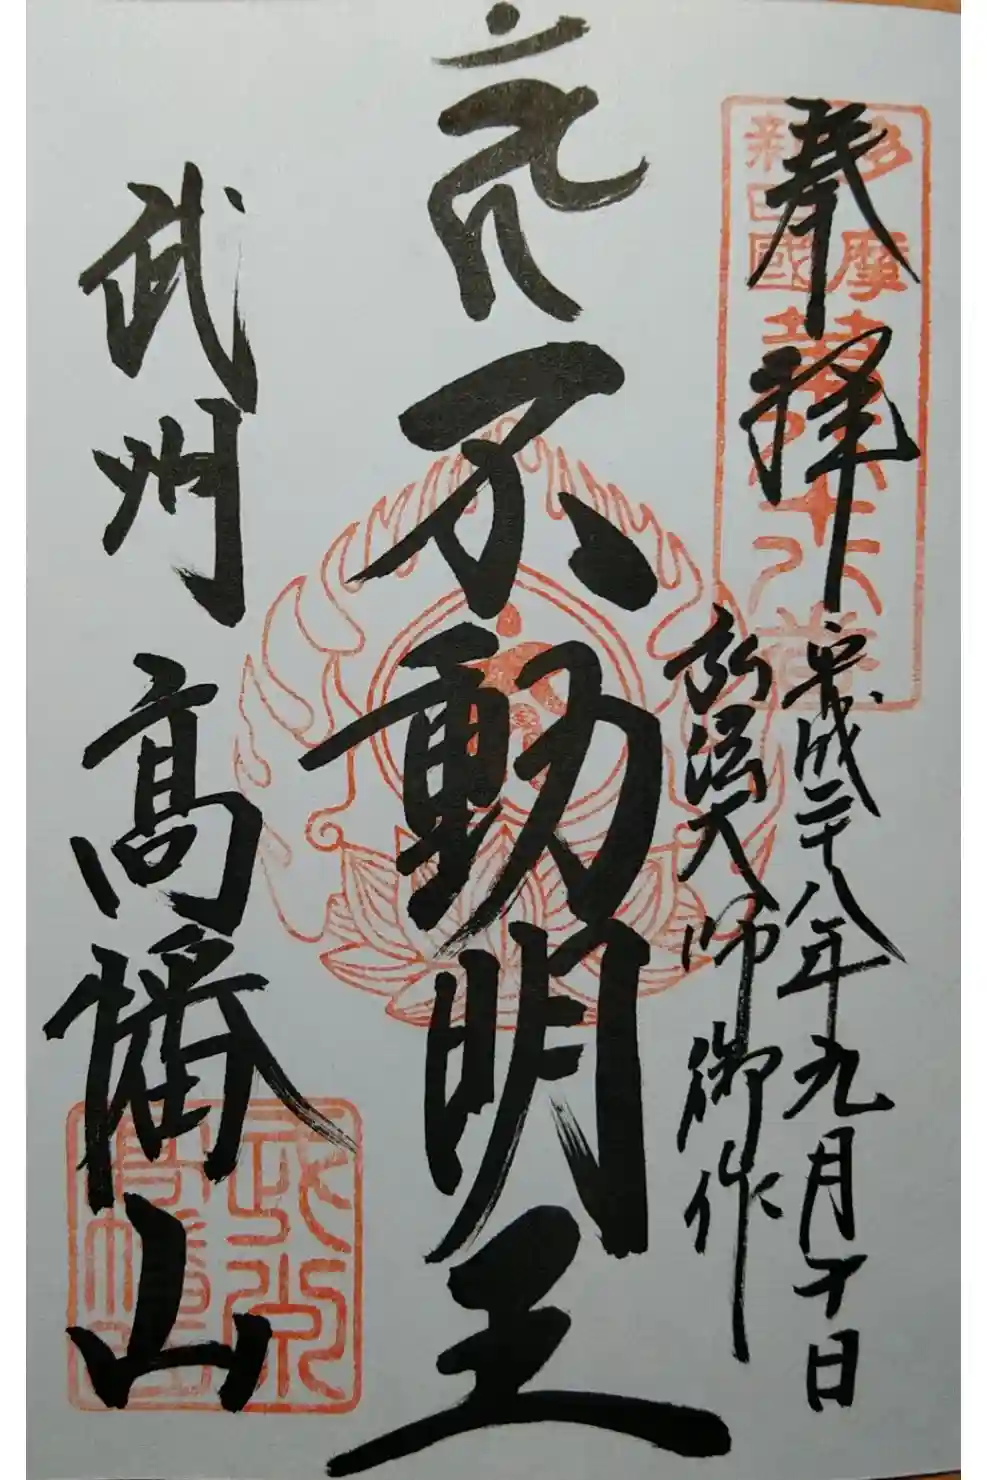 奉拝
平成二十八年九月日
弘法大師御作
不動明王
武州 髙幡山
多摩
新四國
武州
高幡山